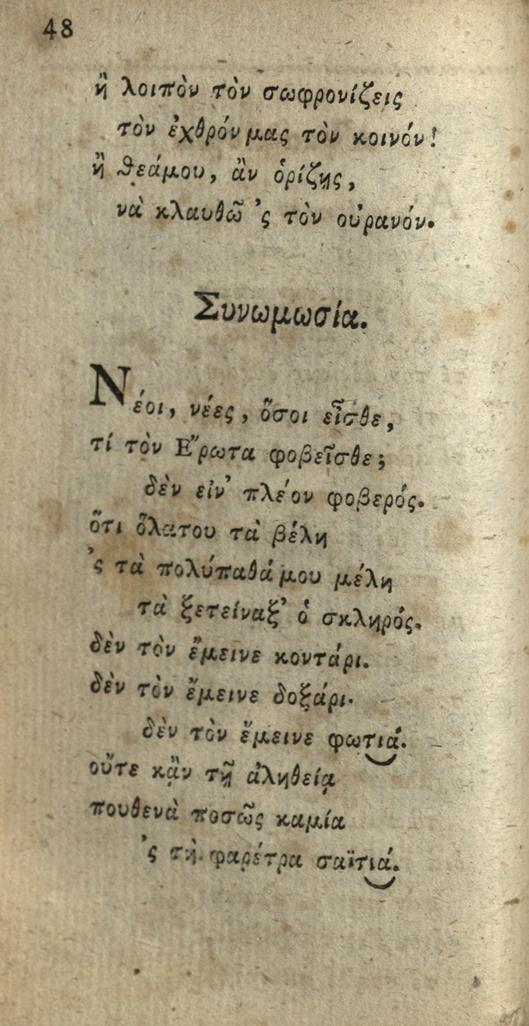 48
ἢ λοιπὸν τὸν σωφρονίζεις
τὸν ἐχθρόν μας τὸν κοινόν!
ἢ θεάμου, ἂν ὁρίζῃς,
νὰ κλαυθῶ ʼς τὸν οὐρανόν.
Συνωμωσία.
Νέοι, νέες, ὅσοι εἶσθε,
τί τὸν Ἔρωτα φοβεῖσθε;
δὲν εἶν' πλέον φοβερός.
ὅτι ὅλατου τὰ βέλη
ʼς τὰ πολύπαθάμου μέλη
τὰ ξετείναξ' ὁ σκληρός.
δὲν τὸν ἔμεινε κοντάρι.
δὲν τὸν ἔμεινε δοξάρι.
δὲν τὸν ἔμεινε φωτιά.
οὔτε κἂν τῇ ἀληθείᾳ
πουθενὰ ποσῶς καμία
ʼς τὴ φαρέτρα σαϊτιά.